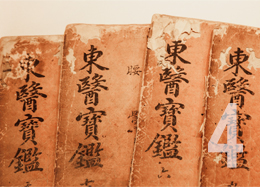 東醫寶鑑
東醫寶鑑
東醫寶鑑 六
東醫寶鑑
4